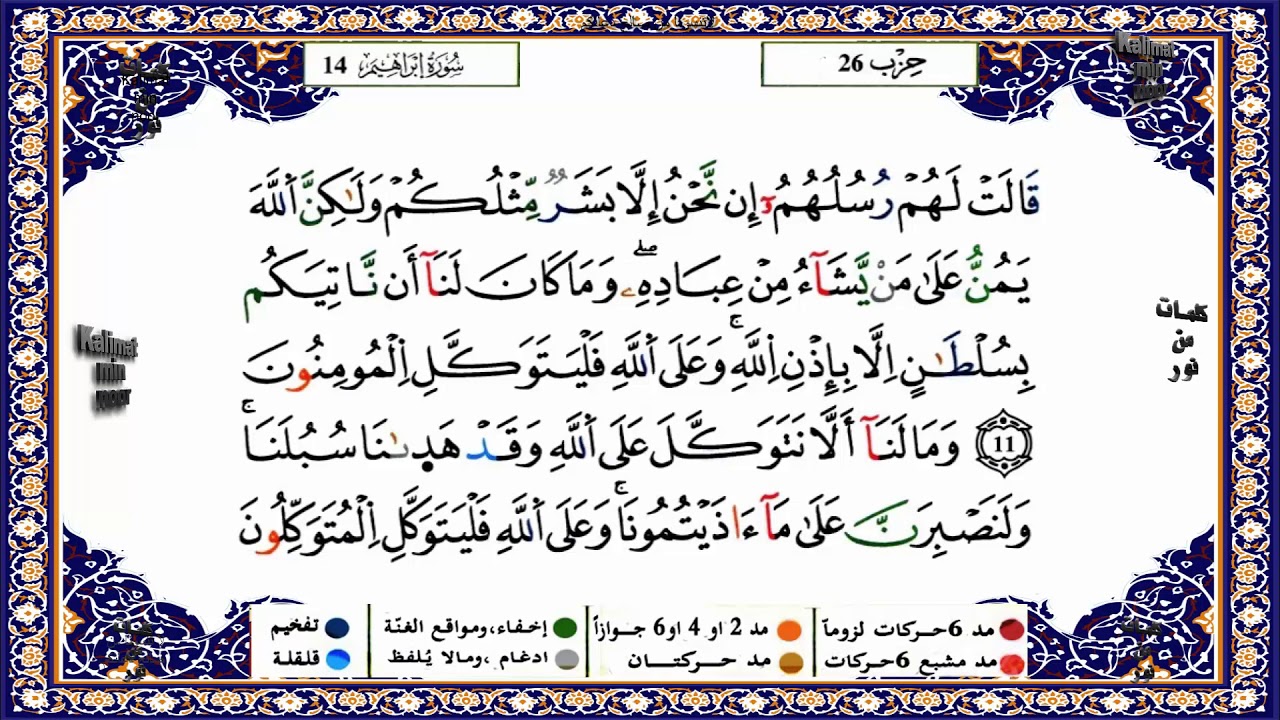 حِزْب 26
سُورَةُ إِبْرَاهِيم 14
قَالَتْ لَهُمْ رُسُلُهُمُۥٓ إِن نَّحْنُ إِلَّا بَشَرٌ مِّثْلُكُمْ وَلَٰكِنَّ اَللَّهَ
يَمُنُّ عَلَىٰ مَنْ يَّشَآءُ مِنْ عِبَادِهِۦۖ وَمَا كَانَ لَنَآ أَن نَّاتِيَكُم
بِسُلْطَٰنٍ اِلَّا بِإِذْنِ اِللَّهِۚ وَعَلَى اَللَّهِ فَلْيَتَوَكَّلِ اِلْمُومِنُونَ
11 وَمَا لَنَآ أَلَّا نَتَوَكَّلَ عَلَى اَللَّهِ وَقَدْ هَد۪ىٰنَا سُبُلَنَاۚ
وَلَنَصْبِرَنَّ عَلَىٰ مَآ ءَاذَيْتُمُونَاۚ وَعَلَى اَللَّهِ فَلْيَتَوَكَّلِ اِلْمُتَوَكِّلُونَ
كلمات
من
نور
Kalimat
min
noor
Kalimat
min
noor
مد 6 حركات لزوماً
مد 2 او 4 او 6 جوازاً
إخفاء، ومواقع الغنّة
تفخيم
مد مشبع 6 حركات
مد حركتان
ادغام، ومالا يُلفظ
قلقلة